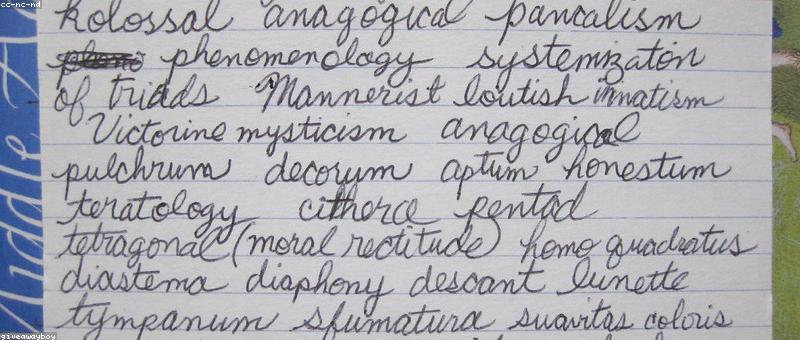 cc-nc-nd
kolossal anagogical pancalism
phenomenology systemizaton
of triads Mannerist loutish innatism
Victorine mysticism anagogical
pulchrum decorum aptum honestum
teratology citherce pentad
tetragonal (moral rectitude) homo quadratus
diastema diaphony descant lunette
tympanum sfumatura suavitas coloris
Middle
giveawayboy